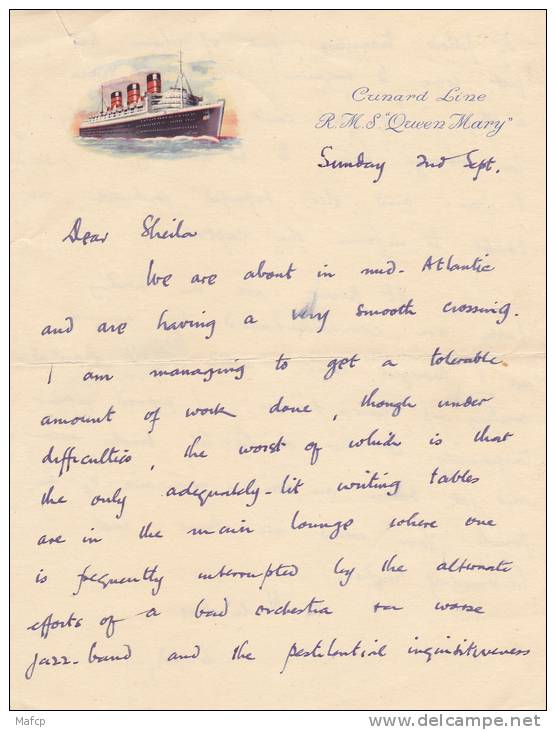 Cunard Line
R.M.S. "Queen Mary"
Sunday 2nd Sept.
Dear Sheila
We are about in mid-Atlantic
and are having a very smooth crossing.
I am managing to get a tolerable
amount of work done, though under
difficulties, the worst of which is that
the only adequately-lit writing tables
are in the main lounge where one
is frequently interrupted by the alternate
efforts of a bad orchestra & a worse
jazz-band and the pestilential inquisitiveness
Mafcp
delcampe.net